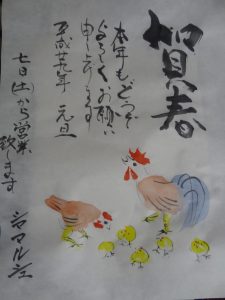 賀春
本年もどうぞ
よろしくお願い
申し上げます
平成廿九年 元旦
七日(土)から営業
致します
シマル